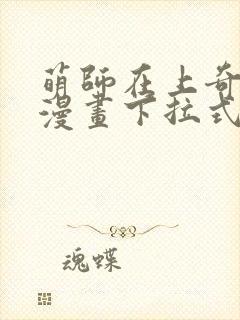 萌師在上奇
漫畫下拉式
魂蝶